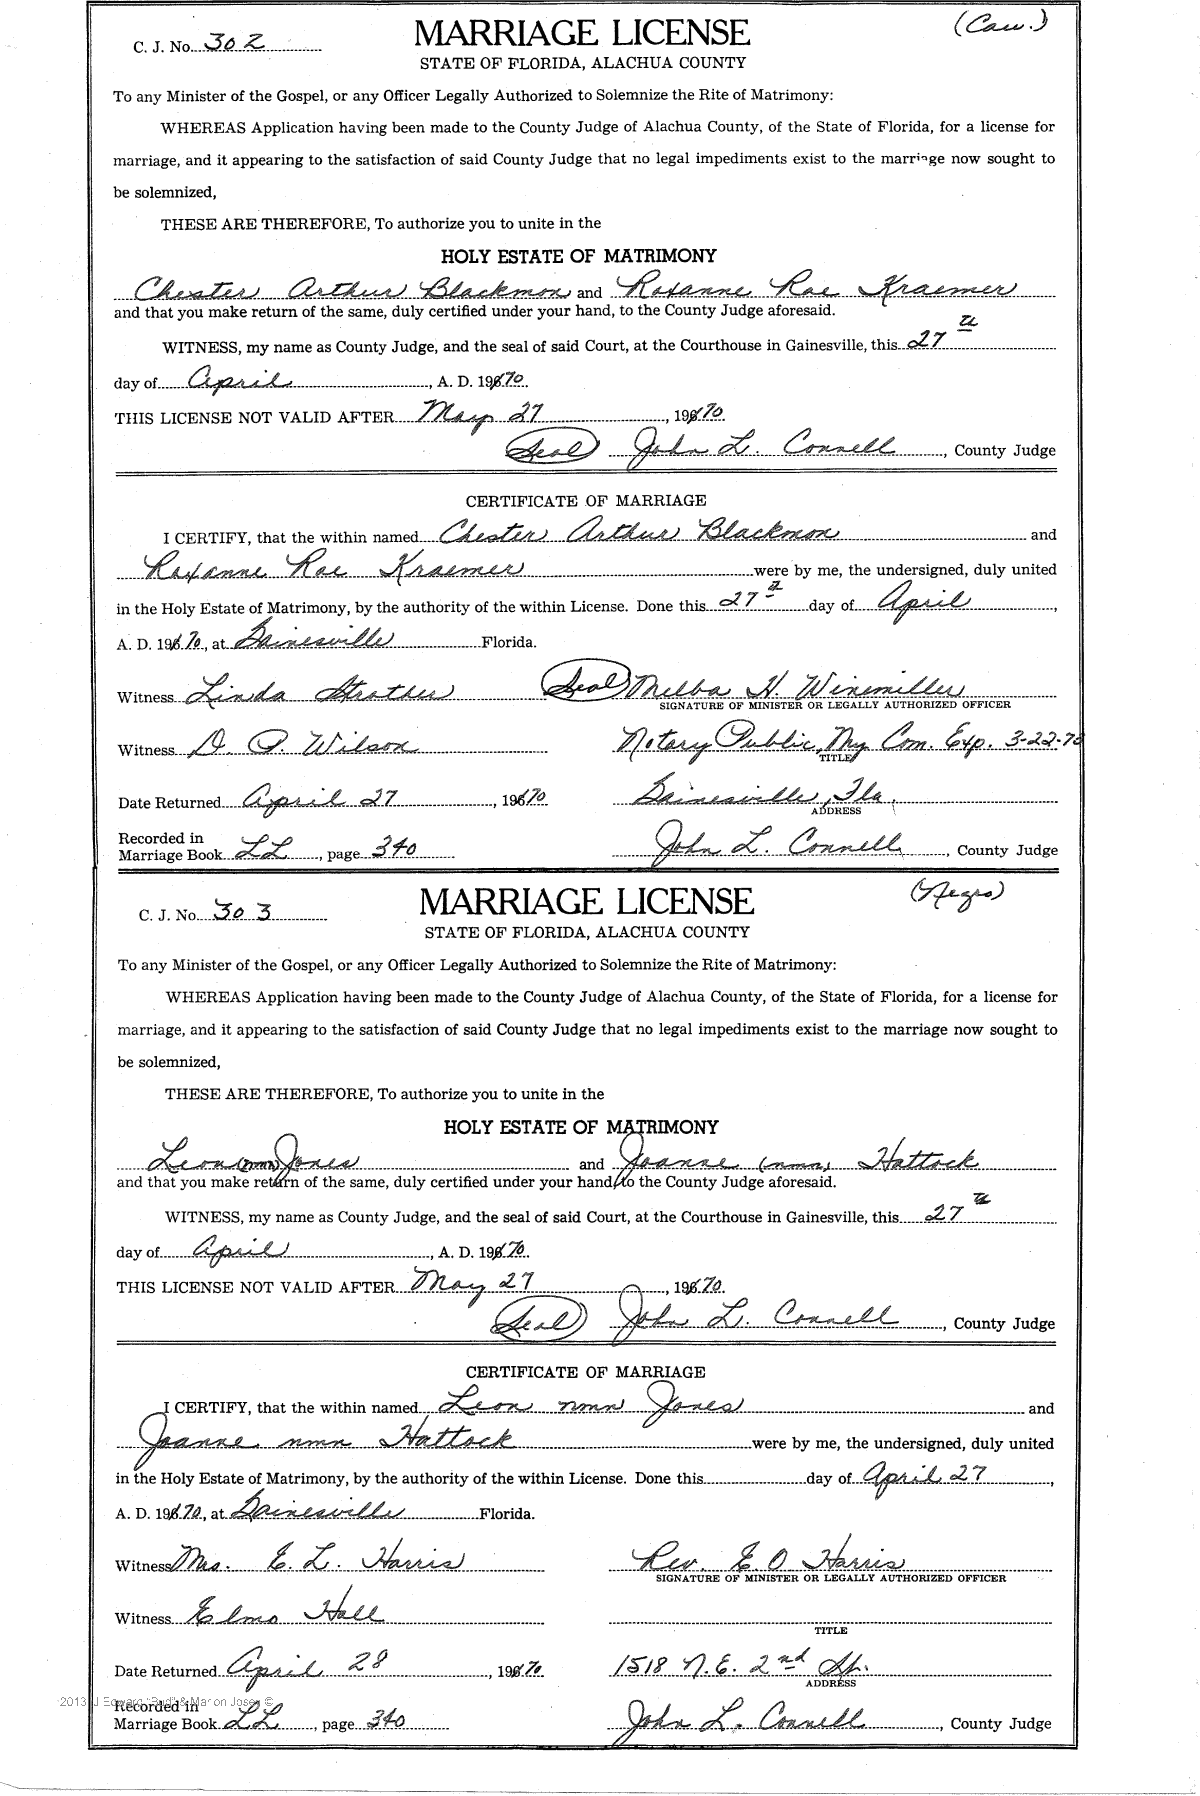 (Cau.)
C. J. No. 302
MARRIAGE LICENSE
STATE OF FLORIDA, ALACHUA COUNTY
To any Minister of the Gospel, or any Officer Legally Authorized to Solemnize the Rite of Matrimony:
WHEREAS Application having been made to the County Judge of Alachua County, of the State of Florida, for a license for
marriage, and it appearing to the satisfaction of said County Judge that no legal impediments exist to the marriage now sought to
be solemnized,
THESE ARE THEREFORE, To authorize you to unite in the
HOLY ESTATE OF MATRIMONY
Chester Arthur Blackmon and Roxanne Rae Kraemer
and that you make return of the same, duly certified under your hand, to the County Judge aforesaid.
WITNESS, my name as County Judge, and the seal of said Court, at the Courthouse in Gainesville, this 27th
day of April, A. D. 1970.
THIS LICENSE NOT VALID AFTER May 27, 1970
(Seal) John L. Connell, County Judge
CERTIFICATE OF MARRIAGE
I CERTIFY, that the within named Chester Arthur Blackmon and
Roxanne Rae Kraemer were by me, the undersigned, duly united
in the Holy Estate of Matrimony, by the authority of the within License. Done this 27th day of April,
A. D. 1970, at Gainesville Florida.
Witness Linda Strather (Seal) Melba H. Winemiller
SIGNATURE OF MINISTER OR LEGALLY AUTHORIZED OFFICER
Witness D. P. Wilson Notary Public, My Com. Exp. 3-22-73
TITLE
Date Returned April 27, 1970 Gainesville, Fla.
ADDRESS
Recorded in
Marriage Book LL, page 340 John L. Connell, County Judge
(Negro)
C. J. No. 303
MARRIAGE LICENSE
STATE OF FLORIDA, ALACHUA COUNTY
To any Minister of the Gospel, or any Officer Legally Authorized to Solemnize the Rite of Matrimony:
WHEREAS Application having been made to the County Judge of Alachua County, of the State of Florida, for a license for
marriage, and it appearing to the satisfaction of said County Judge that no legal impediments exist to the marriage now sought to
be solemnized,
THESE ARE THEREFORE, To authorize you to unite in the
HOLY ESTATE OF MATRIMONY
Leon (nmn) Jones and Joanne (nmn) Hattock
and that you make return of the same, duly certified under your hand, to the County Judge aforesaid.
WITNESS, my name as County Judge, and the seal of said Court, at the Courthouse in Gainesville, this 27th
day of April, A. D. 1970.
THIS LICENSE NOT VALID AFTER May 27, 1970.
(Seal) John L. Connell, County Judge
CERTIFICATE OF MARRIAGE
I CERTIFY, that the within named Leon nmn Jones and
Joanne nmn Hattock were by me, the undersigned, duly united
in the Holy Estate of Matrimony, by the authority of the within License. Done this day of April 27,
A. D. 1970, at Gainesville Florida.
Witness Mrs. E. L. Harris Rev. E. O Harris
SIGNATURE OF MINISTER OR LEGALLY AUTHORIZED OFFICER
Witness Elmo Hall
TITLE
Date Returned April 28, 1970 1518 N.E. 2nd St.
ADDRESS
2013 J Edward "Bud" & Marion Josey ©
Recorded in
Marriage Book LL, page 340 John L. Connell, County Judge